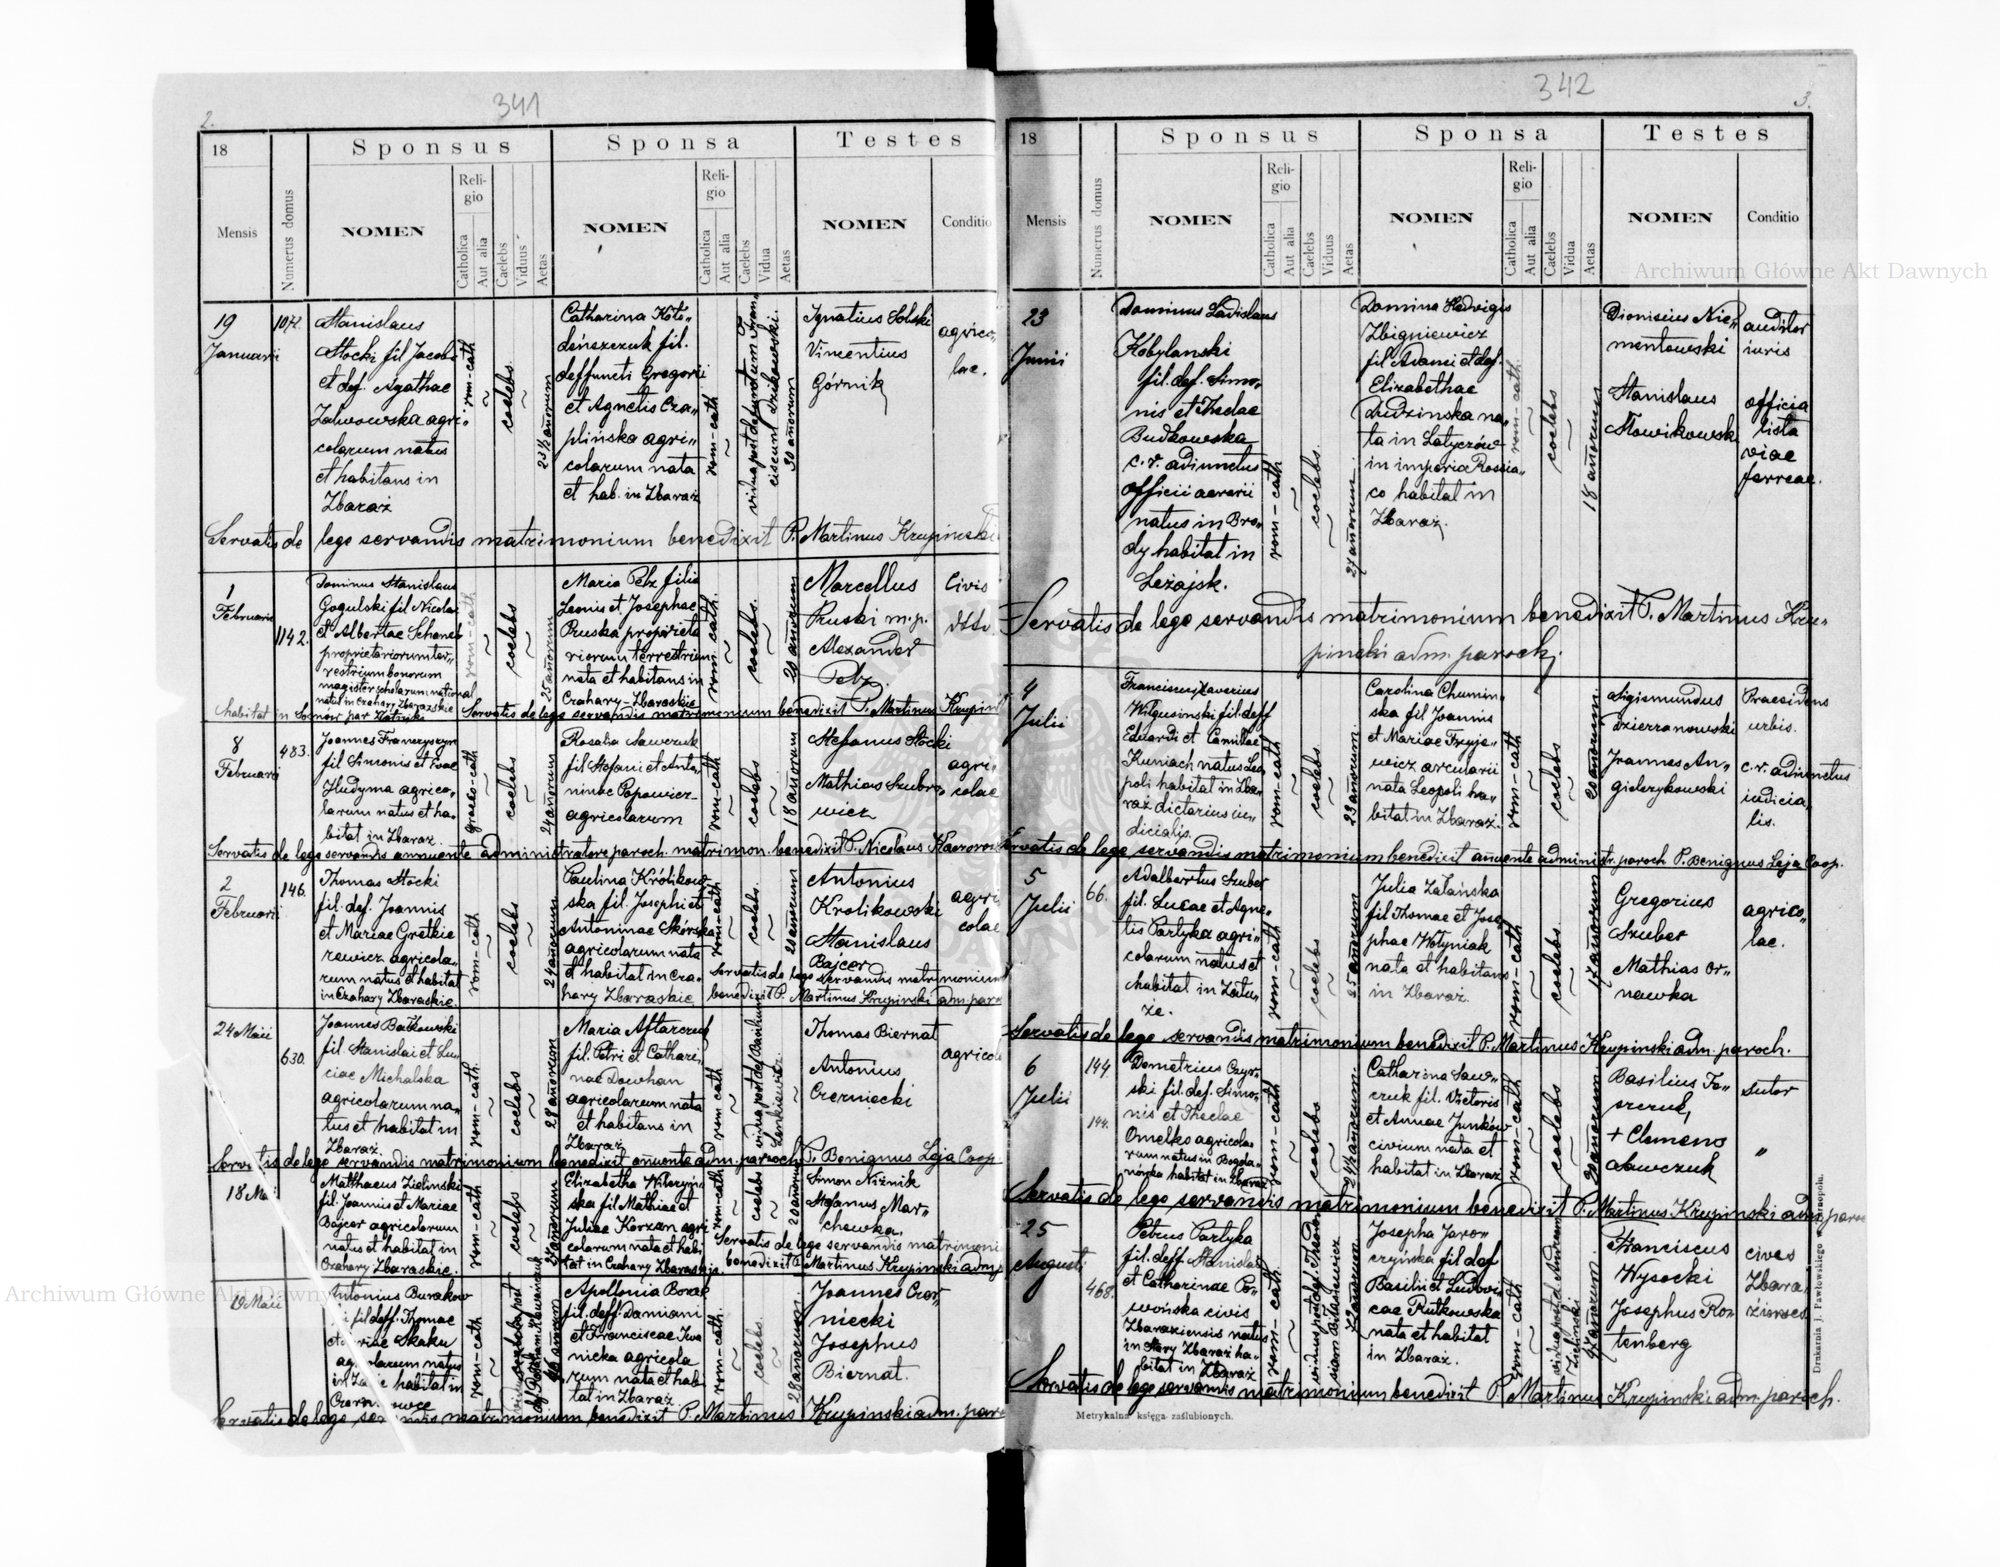 341
2.
18
Sponsus
Sponsa
Testes
Mensis
Numerus domus
NOMEN
Religio
Catholica
Aut alia
Caelebs
Viduus
Aetas
NOMEN
Religio
Catholica
Aut alia
Caelebs
Vidua
Aetas
NOMEN
Conditio
19
Januarii
Stanislaus
Stocki fil Jacobi
et def. Agathae
agri
colarum natus
et habitans in
Zbaraż
rom-cath
coelebs
23 1/2 añorum
Catharina
fil.
deffuncti Gregorii
et Agnetis Cza„
plińska agri„
colarum nata
et hab. in Zbaraż
rom-cath
30 añorum
Ignatius Solski
Vincentius
Górnik
agrico„
lae.
Servatis de lege servandis matrimonium benedixit P. Martinus Krupinski
1
Februarii
1142.
Dominus Stanislaus
Gogulski fil Nicolai
et Albertae
proprietariorum ter„
restrium bonorum
magister scholarum national
natus in Czahary Zbarazkie
habitat in
rom-cath
coelebs
25 añorum
Maria Petz filia
Leonis et Josephae
Pruska proprieta
riorum terrestrium
nata et habitans in
Czahary-Zbaraskie
rom-cath
coelebs
20 añorum
Marcellus
Pruski m.p.
Alexander
Petz
Civis
Servatis de lege servandis matrimonium benedixit P. Martinus Krupinski
8
Februarii
483.
Joannes Franczyszyn
fil Simonis et Evae
Hudyma agrico„
larum natus et ha„
bitat in Zbaraż
graeco-cath
coelebs
24 añorum
Rosalia Sawczuk
fil Stefani et Anto„
ninae Popowicz
agricolarum
rom-cath
coelebs
18 añorum
Stefanus Stocki
Mathias Szubro„
wicz
agri„
colae
Servatis de lege servandis annuente administratore paroch. matrimon. benedixit P. Nicolaus
2
Februarii
146.
Thomas Stocki
fil. def. Joannis
et Mariae Gretkie
rewicz agricola„
rum natus et habitat
in Czahary Zbaraskie.
rom-cath
coelebs
24 añorum
Paulina Królikow
ska fil. Josephi et
Antoninae Skórska
agricolarum nata
et habitat in Cza„
hary Zbaraskie
rom-cath
coelebs
20 añorum
Antonius
Krolikowski
Stanislaus
Bajcer
agri
colae
Servatis de lege servandis matrimonium
benedixit P. Martinus Krupinski adm. paro
24 Maii
630.
Joannes Bałkowski
fil. Stanislai et Lu„
ciae Michalska
agricolarum na„
tus et habitat in
Zbaraż
rom-cath.
coelebs
28 añorum
Maria Aftarczuk
fil. Petri et Cathari„
nae Dowhan
agricolarum nata
et habitans in
Zbaraż
rom cath
Thomas Biernat
Antonius
Czerniecki
agricolae
Servatis de lege servandis matrimonium benedixit añuente adm. paroch. P. Benignus Leja Coop.
18 Maii
Matthaeus Zielinski
fil. Joannis et Mariae
Bajcer agricolarum
natus et habitat in
Czahary Zbaraskie.
rom-cath
coelebs
Elizabetha
ska fil Mathiae et
Juliae Korzan agri
colarum nata et habi
tat in Czahary Zbaraskie
rom-cath
coelebs
20 añorum
Simon Niżnik
Stefanus Mar„
chewka
Servatis de lege servandis matrimoni
benedixit P. Martinus Krupinski adm p
19 Maii
Antonius Burakow
ski fil deff. Thomae
natus
habitat in
rom-cath
Apollonia Borak
fil. deff. Damiani
et Franciscae Iwa
nicka agricola
rum nata et habi
tat in Zbaraż
rom-cath.
coelebs.
28 añorum.
Joannes Czer„
niecki
Josephus
Biernat.
Servatis de lege servandis matrimonium benedixit P. Martinus Krupinski adm. paro
342
3.
18
Sponsus
Sponsa
Testes
Mensis
Numerus domus
NOMEN
Religio
Catholica
Aut alia
Caelebs
Viduus
Aetas
NOMEN
Religio
Catholica
Aut alia
Caelebs
Vidua
Aetas
NOMEN
Conditio
23
Junii
Dominus Ladislaus
Kobylanski
fil. def. Simo„
nis et Theclae
Budkowska
c.r. adiunctus
officii aerarii
natus in Bro„
dy habitat in
Leżajsk.
rom-cath
coelebs
27 añorum
Domina Hedvigis
Zbigniewicz
fil Adami et def.
Elizabethae
Dudzinska na„
ta in Latyczów
in imperia Rossia„
co habitat in
Zbaraż.
rom-cath.
coelebs
18 añorum
Dionisius Nie„
mentowski
Stanislaus
Słowikowski
auditor
iuris
officia
lista
viae
ferreae.
Servatis de lege servandis matrimonium benedixit P. Martinus Kru„
pinski adm. paroch.
4
Julii
Franciscus Xaverius
fil. deff
Eduardi et Camillae
Kuniach natus Leo
poli habitat in Zba„
raż dictarius iu„
dicialis.
rom-cath
coelebs
23 añorum
Carolina Chumin„
ska fil Joannis
et Mariae Fryje„
wicz arcularii
nata Leopoli ha„
bitat in Zbaraż.
rom-cath
coelebs
20 añorum
Sigismundus
Dzierzanowski
Joannes An„
gielczykowski
Praesidens
urbis.
c.r. adiunctus
iudicia„
lis.
Servatis de lege servandis matrimonium benedixit añuente administr. paroch P. Benignus Leja Coop.
5
Julii
66.
Adalbertus Szuber
fil. Lucae et Agne„
tis Partyka agri„
colarum natus et
habitat in Zału„
że.
rom-cath
coelebs
25 añorum
Julia Załańska
fil Thomae et Jose
phae Wołyniak
nata et habitans
in Zbaraż.
rom-cath
coelebs.
17 añorum
Gregorius
Szuber
Mathias Or„
nawka
agrico„
lae.
Servatis de lege servandis matrimonium benedixit P. Martinus Krupinski adm. paroch.
6
Julii
144.
144.
Demetrius Czyr„
ski fil. def. Simo„
nis et Theclae
Omelko agricola
rum natus in Bogda„
nówka habitat in Zbaraż
rom-cath
coelebs
24 1/2 añorum.
Catharina Saw„
czuk fil. Victoris
et Annae Junków
civium nata et
habitat in Zbaraż
rom-cath
coelebs
20 añorum
Basilius To„
szczuk,
+ Clemens
Sawczuk
Sutor
„
Servatis de lege servandis matrimonium benedixit P. Martinus Krupinski adm. paroc
25
Augusti
468.
Petrus Partyka
fil. deff. Stanislai
et Catharinae Po„
wońska civis
Zbaraziensis natus
in Stary Zbaraż ha„
bitat in Zbaraż
rom-cath.
Josepha Jawo„
czyńska fil def
Basilii et Ludovi„
cae Rutkowska
nata et habitat
in Zbaraż.
rom-cath
Franciscus
Wysocki
Josephus Ro„
tenberg
cives
Zbara„
zienses.
Servatis de lege servandis matrimonium benedixit P. Martinus Krupinski adm. paroch.
Metrykalna księga zaślubionych.
Drukarnia J. Pawłowskiego w Tarnopolu.
Archiwum Główne Akt Dawnych
Archiwum Główne Akt Dawnych